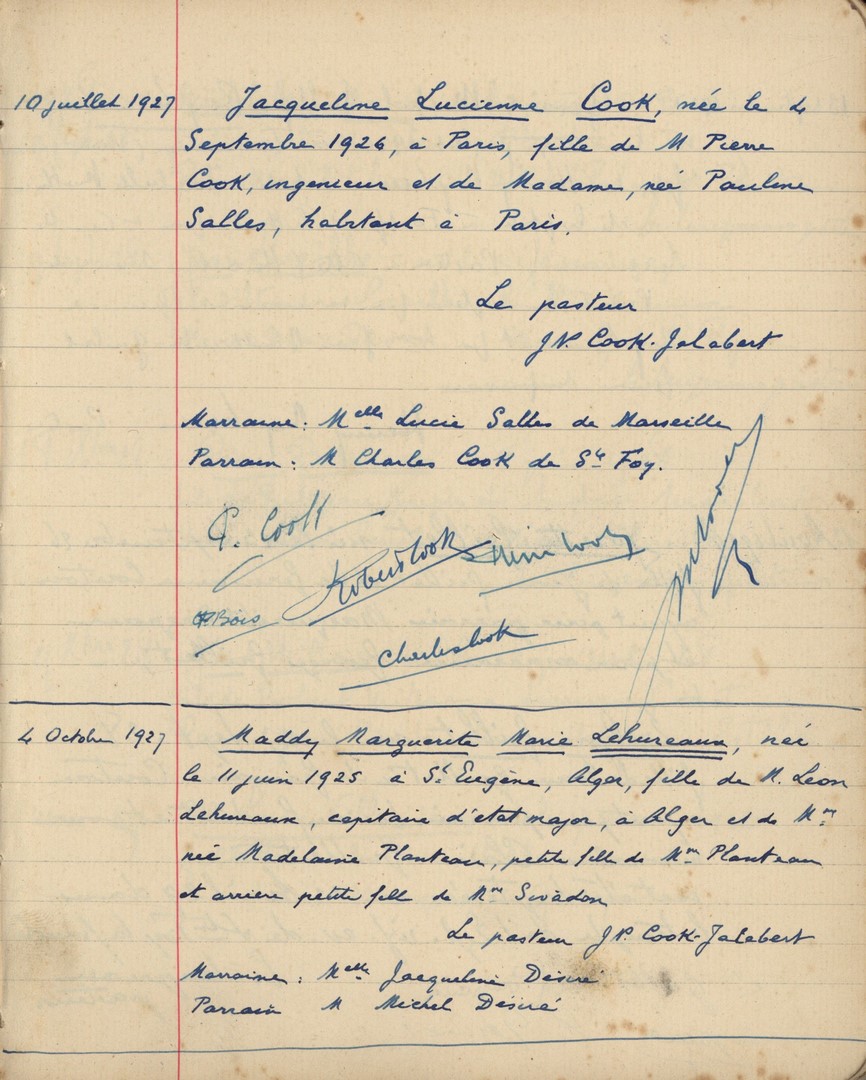 10 juillet 1927 Jacqueline Lucienne Cook, née le 4
Septembre 1926, à Paris, fille de M Pierre
Cook, ingenieur et de Madame, née Pauline
Salles, habitant à Paris.
Le pasteur
JP. Cook-Jalabert
Marraine: Melle Lucie Salles de Marseille
Parrain: M Charles Cook de Ste Foy.
P. Cook
Robert Cook
Bois
Charles Cook
4 Octobre 1927 Maddy Marguerite Marie Lehureaux, née
le 11 juin 1925 à St Eugène, Alger, fille de M. Léon
Lehureaux, capitaine d'etat major, à Alger et de Mme
née Madelaine Planteau, petite fille de Mme Planteau
et arrière petite fille de Mme Swadon
Le pasteur JP. Cook-Jalabert
Marraine: Melle Jacqueline Désiré
Parrain M Michel Désiré